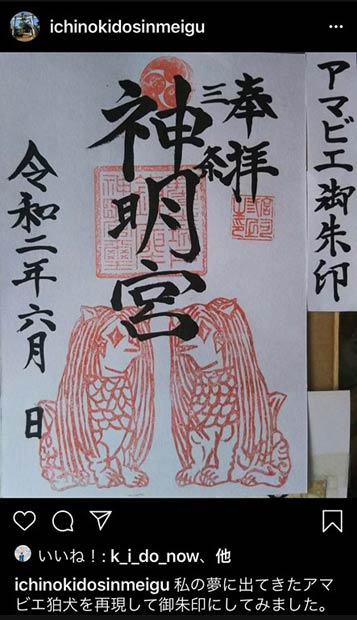 ichinokidosinmeigu
アマビエ御朱印
奉拝
三条
神明宮
令和二年六月 日
いいね！: k_i_do_now、他
ichinokidosinmeigu 私の夢に出てきたアマ
ビエ狛犬を再現して御朱印にしてみました。